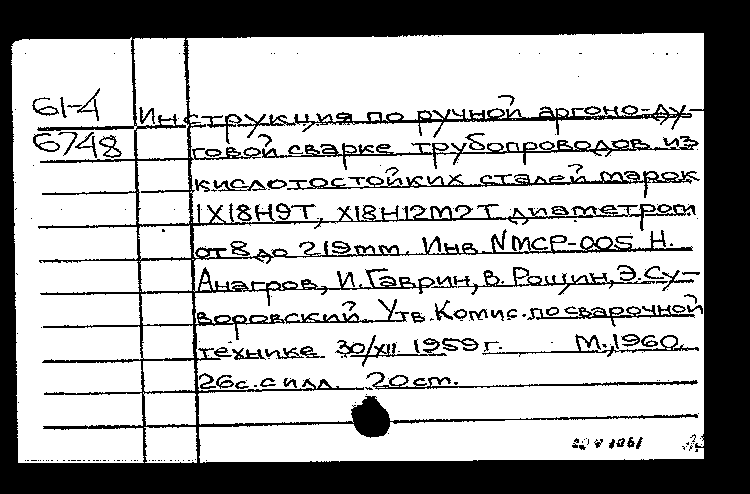 61-4 Инструкция по ручной аргоно-ду-
6748 говой сварке трубопроводов из
кислотостойких сталей марок
1Х18Н9Т, Х18Н12М2Т диаметром
от 8 до 219mm. Инв. №МСР-005 Н.
Анагров, И. Гаврин, В. Рощин, Э. Су-
воровский. Утв. Комис. по сварочной
технике 30/XII 1959г. М., 1960.
26с. с илл. 20см.